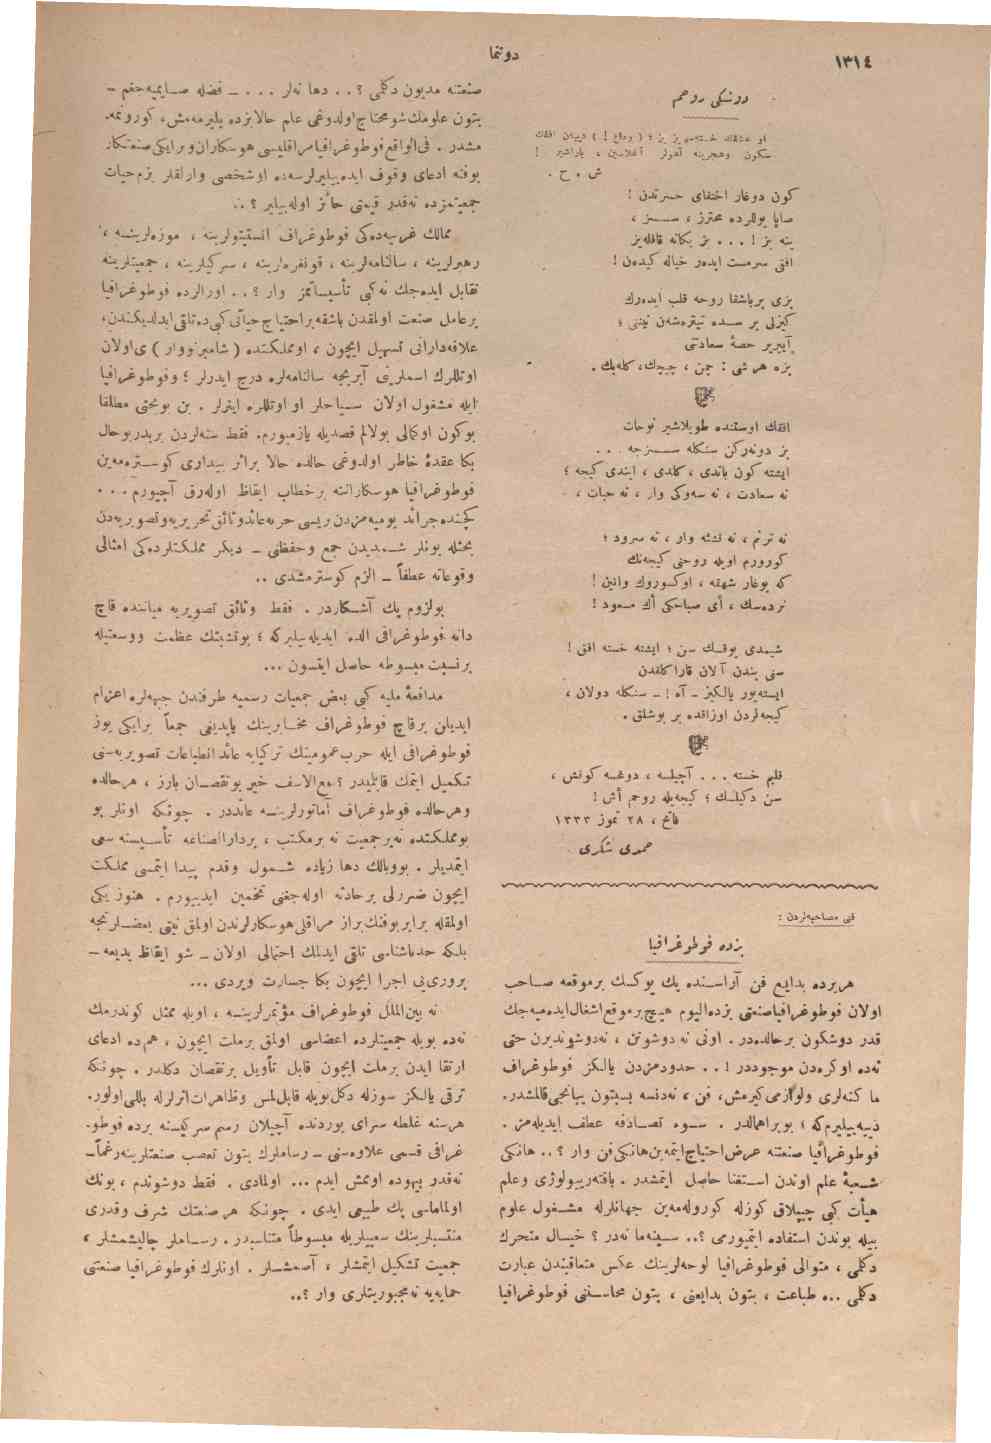 ١٣١٤
دوننما
دونسكی روحم
او عشقك خسته‌سی یز بز ؛ ( وداع ! ) دییه‌ن افقك
سكون وهجرینه آغلار آغلاسین ، یاراشیر !
ش . ح .
كون دوغار اختفای حسرتدن !
صاپا یوللرده محترز ، سسسز ،
ینه بز ! . . . بز یكانه قافله‌یز
افقی سرمست ایده‌ر خیاله كیده‌ن !
بزی برباشقا روحه قلب ایده‌رك
كیزلی بر سسده تیتره‌شه‌ن نینی ؛
آییریر حصهٔ سعادتنی
بزه هر شی : چمن ، چیچك، كله‌بك .
افقك اوستنده طوپلاشیر نوحات
بز دونه‌ركن سنكله سسسزجه . . .
ایشته كون یاندی ، كلدی ، ایندی كیجه ؛
نه سعادت ، نه سه‌وكی وار ، نه حیات ،
نه ترنم ، نه نشئه وار ، نه سرود ؛
كورورم اویله روحنی كیجه‌نك
كه بوغار شهقه ، اوكسوروك وانین !
نرده‌سك ، أی صباحكی أك مسعود !
شیمدی یوقسك سن ؛ ایشته خسته افق !
سنی بندن آلان قاراكلقدن
ایسته‌یور یالكیز ـ آه ! ـ سنكله دولان ،
كیجه‌لردن اوزاقده بر بوشلق .
قلبم خسته . . . آجیلسه ، دوغسه كونش ،
سن دكیلسك ؛ كیجه‌یله روحم أش !
فاتح ، ٢٨ تموز ١٣٣٣
حمدی شكری
فنی مصاحبه‌لردن :
بزده فوطوغرافیا
هریرده بدایع فن آراسنده پك یوكسك برموقعه صاحب
اولان فوطوغرافیاصنعتی بزده‌الیوم هیچ برموقع اشغال ایده‌میه‌جك
قدر دوشكون برحالده‌در . اونی نه دوشونن ، نه‌دوشوندیرن حتی
نه‌ده اوكره‌دن موجوددر ! . . حدودمزدن یالكز فوطوغراف
ما كنه‌لری ولوازمی كیرمش، فن ، نه‌دنسه بسبتون یبانجی قالمشدر.
دییه‌بیلیرم‌كه ؛ بوبراهمالدر . سوء تصادفه عطف ایدیله‌مز .
فوطوغرافیا صنعتنه عرض احتیاج ایتمه‌ین‌هانكی‌فن وار ؟ . . هانكی
شعبهٔ علم اوندن استغنا حاصل ایتمشدر . باقته‌ریولوژی وعلم
هیأت كبی چیپلاق كوزله كورولمه‌ین جهانلرله مشغول علوم
بیله بوندن استفاده ایتمیورمی ؟.. سینه‌ما نه‌در ؟ خیال متحرك
دكلمی ، متوالی فوطوغرافیا لوحه‌لرینك عكس متعاقبندن عبارت
دكلمی ... طباعت ، بتون بدایعنی ، بتون محاسننی فوطوغرافیا
صنعتنه مدیون دكلمی ؟ . . دها نه‌لر . . . ـ فضله صایمیه‌جغم ـ
بتون علومك‌شومحتاج‌اولدوغی علم حالابزده بیلیرمه‌مش، كورونمه‌
مشدر . فی‌الواقع‌فوطوغرافیامراقلیسی هوسكاران‌وبرایكی‌صنعتكار
بوفنه ادعای وقوف ایده‌بیلیرلرسه‌ده اوشخصی وارلقلر بزم‌حیات
جمعیتمزده نه‌قدر قیمتی حائز اوله‌بیلیر ؟ ..
ممالك غربیه‌ده‌كی فوطوغراف انستیتولرینه ، موزه‌لرینه ،
رهبرلرینه ، سالنامه‌لرینه ، قونفره‌لرینه ، سركیلرینه ، جمعیتلرینه
تقابل ایده‌جك نه‌كبی تأسیساتمز وار ؟ . . اورالرده فوطوغرافیا
برعامل صنعت اولمقدن باشقه‌براحتیاج حیاتی‌كبی‌ده‌تلقی‌ایدلدیكندن،
علاقه‌دارانی تسهیل ایچون ، اومملكتده ( شامبرنووار ) ی‌اولان
اوتللرك اسملرینی آیریجه سالنامه‌لره درج ایدرلر ؛ وفوطوغرافیا
ایله مشغول اولان سیاحلر او اوتللره اینرلر . بن بونجی مطلقا
بوكون اوكمالی بولالم قصدیله یازمیورم. فقط سنه‌لردن بریدربوحال
بكا عقدهٔ خاطر اولدوغی حالده حالا براثر بیداری كوسترمه‌ین
فوطوغرافیا هوسكارانته برخطاب ایقاظ اوله‌رق آجیورم . . .
كچنده‌جرائد یومیه‌مزدن بریسی حربه‌عائدوثائق تحریریه‌وتصویریه‌دن
بحثله بونلر شمدیدن جمع وحفظنی ـ دیكر مملكتلرده‌كی امثالی
وقوعاته عطفاً ـ الزم كوسترمشدی ..
بولزوم پك آشكاردر . فقط وثائق تصویریه میاننده قاچ
دانه فوطوغرافی الده ایدیله‌بیلیركه ؛ بوقتیتك عظمت ووسعتیله
برنسبت مبسوطه حاصل ایتسون ...
مدافعهٔ ملیه كبی بعض جمعیات رسمیه طرفندن جبهه‌لره اعزام
ایدیلن برقاچ فوطوغراف مخابرینك یاپدیغی جمعاً برایكی یوز
فوطوغرافی ایله حرب‌عمومینك تركیایه عائدانطباعات تصویریه‌سنی
تكمیل ایتمك قابلمیدر ؟ مع‌الاسف خیر بونقصان بارز ، هرحالده
وهرحالده فوطوغراف آماتورلرینه عائددر . چونكه اونلر بو
بومملكتده نه‌برجمعیت نه برمكتب ، بردارالصناعه تأسیسنه سعی
ایتمدیلر . بووبالك دها زیاده شمول وقدم پیدا ایتمسی مملكت
ایچون ضررلی برحادثه اوله‌جغنی تخمین ایدییورم . هنوز یكی
اولمقله برابربوفنك‌براز مراقلی‌هوسكارلرندن اولمق نیتی بعضلرنجه
بلكه حدناشناسی تلقی ایدلمك احتمالی اولان ـ شو ایقاظ بدیعه ـ
پروری‌یی اجرا ایچون بكا جسارت ویردی ...
نه بین‌الملل فوطوغراف مؤتمرلرینه ، اویله ممثل كوندرمك
نه‌ده بویله جمعیتلرده اعضاسی اولمق برملت ایچون ، هم‌ده ادعای
ارتقا ایدن برملت ایچون قابل تأویل برنقصان دكلدر . چونكه
ترقی یالكز سوزله دكل‌بویله قابل‌لمس وظاهرات‌اثرلرله بللی‌اولور.
هرسنه غلطه سرای یوردنده آچیلان رسم سركیسنه برده فوطو.
غرافی قسمی علاوه‌سنی ـ رساملرك بتون تعصب صنعتلرینه‌رغماً ـ
نه‌قدر بیهوده اوتمش ایدم ... اولمادی . فقط دوشوندم ، بونك
اولماماسی پك طبیعی ایدی . چونكه هرصنعتك شرف وقدری
منتسبلرینك سعییلریله مبسوطاً متناسبدر . رساملر چالیشمشلر ،
جمعیت تشكیل ایتمشلر ، آصمشلر . اونلرك فوطوغرافیا صنعتنی
حمایه‌یه نه‌مجبوریتلری وار ؟..